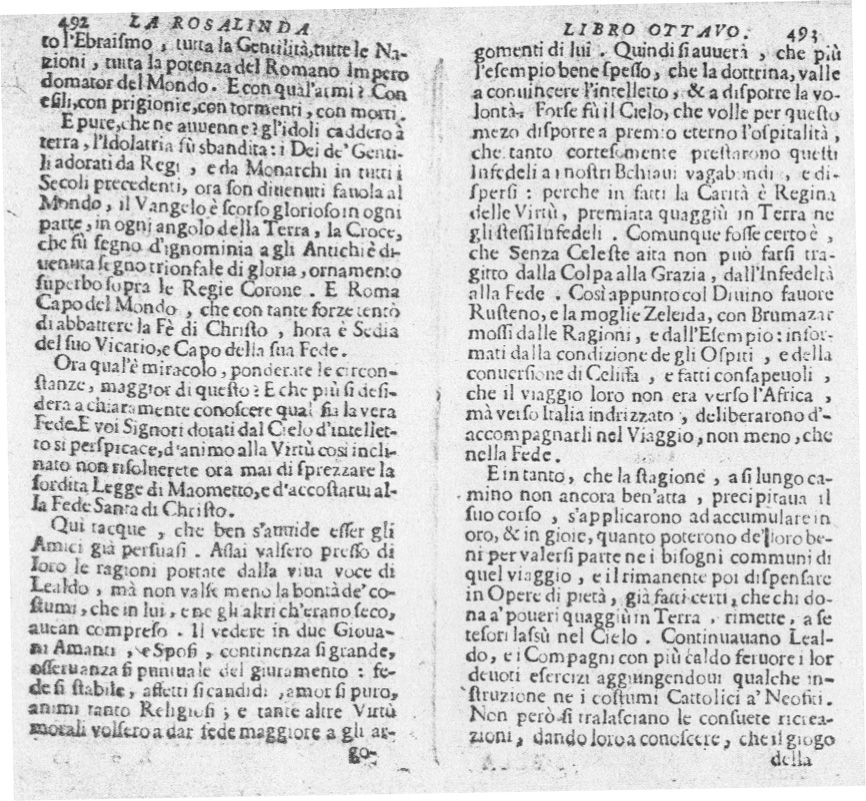 492 LA ROSALINDA
to l'Ebraiſmo, tutta la Gentilità, tutte le Na-
zioni, tutta la potenza del Romano Impero
domator del Mondo. E con qual'armi? Con
eſili, con prigionie, con tormenti, con morti.
E pure, che ne auuenne? gl'idoli caddero à
terra, l'Idolatria fù sbandita: i Dei de' Genti-
li adorati da Regi, e da Monarchi in tutti i
Secoli precedenti, ora ſon diuenuti fauola al
Mondo, il Vangelo è ſcorſo glorioſo in ogni
parte, in ogni angolo della Terra, la Croce,
che fù ſegno d'ignominia a gli Antichi è di-
uenuta ſegno trionfale di gloria, ornamento
ſuperbo ſopra le Regie Corone. E Roma
Capo del Mondo, che con tante forze tentò
di abbattere la Fè di Chriſto, hora è Sedia
del ſuo Vicario, e Capo della ſua Fede.
Ora qual'è miracolo, ponderate le circon-
ſtanze, maggior di queſto? E che più ſi deſi-
dera a chiaramente conoſcere qual ſia la vera
Fede. E voi Signori dotati dal Cielo d'intellet-
to sì perſpicace, d'animo alla Virtù così incli-
nato non riſoluerete ora mai di ſprezzare la
ſordita Legge di Maometto, e d'accoſtarui al-
la Fede Santa di Chriſto.
Qui tacque, che ben s'auuide eſſer gli
Amici già perſuaſi. Aſſai valſero preſſo di
loro le ragioni portate dalla viua voce di
Lealdo, mà non valſe meno la bontà de' co-
ſtumi, che in lui, e ne gli altri ch'erano ſeco,
auean compreſo. Il vedere in due Gioua-
ni Amanti, e Spoſi, continenza ſi grande,
oſſeruanza ſi puntuale del giuramento: fe-
de ſi ſtabile, affetti ſi candidi, amor ſi puro,
animi tanto Religioſi; e tante altre Virtù
morali volſero a dar fede maggiore a gli ar-
go-
LIBRO OTTAVO. 493
gomenti di lui. Quindi ſi auuerà, che più
l'eſempio bene ſpeſſo, che la dottrina, valle
a conuincere l'intelletto, & a diſporre la vo-
lontà. Forſe fù il Cielo, che volle per queſto
mezo diſporre a premio eterno l'oſpitalità,
che tanto corteſemente preſtarono queſti
Infedeli a i noſtri Schiaui vagabondi, e di-
ſperſi: perche in fatti la Carità è Regina
delle Virtù, premiata quaggiù in Terra ne
gli ſteſſi Infedeli. Comunque foſſe certo è,
che Senza Celeſte aita non può farſi tra-
gitto dalla Colpa alla Grazia, dall'Infedeltà
alla Fede. Così appunto col Diuino fauore
Ruſteno, e la moglie Zeleida, con Brumazar
moſſi dalle Ragioni, e dall'Eſempio: infor-
mati dalla condizione de gli Oſpiti, e della
conuerſione di Celifa, e fatti conſapeuoli,
che il viaggio loro non era verſo l'Africa,
mà verſo Italia indrizzato, deliberarono d'-
accompagnarli nel Viaggio, non meno, che
nella Fede.
E in tanto, che la ſtagione, a ſi lungo ca-
mino non ancora ben'atta, precipitaua il
ſuo corſo, s'applicarono ad accumulare in
oro, & in gioie, quanto poterono de' loro be-
ni per valerſi parte ne i biſogni communi di
quel viaggio, e il rimanente poi diſpenſare
in Opere di pietà, già fatti certi, che chi do-
na a' poueri quaggiù in Terra, rimette, a ſe
teſori laſsù nel Cielo. Continuauano Leal-
do, e i Compagni con più caldo feruore i lor
deuoti eſercizi aggiungendoui qualche in-
ſtruzione ne i coſtumi Cattolici a' Neofiti.
Non però ſi tralaſciano le conſuete ricrea-
zioni, dando loro a conoſcere, che il giogo
della